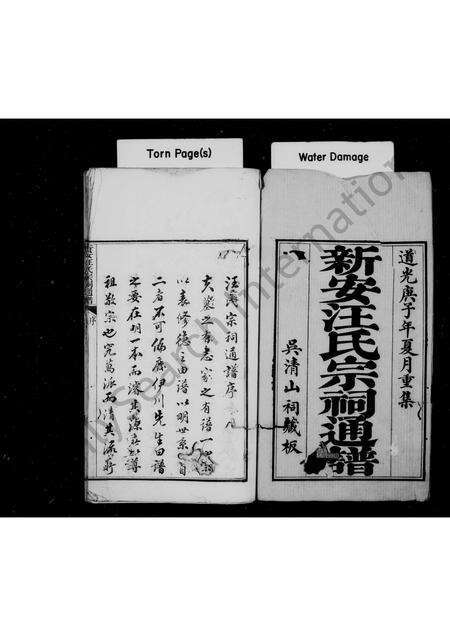 Torn Page(s)
Water Damage
道光庚子年夏月重集
新安汪氏宗祠通譜
吳清山祠藏板
汪氏宗祠通譜序
夫墓之有表家之有譜一
以表修德一由譜以明世系
二者不可偏廢伊川先生曰譜
之要在明一本而濬其源
祖敬宗也究萬派而清其流
序